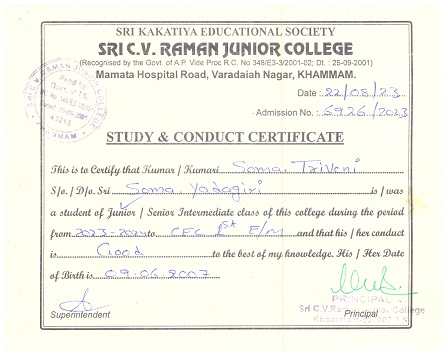 SRI KAKATIYA EDUCATIONAL SOCIETY
SRI C.V. RAMAN JUNIOR COLLEGE
(Recognised by the Govt. of A.P. Vide Proc R.C. No 348/E3-3/2001-02; Dt. : 25-09-2001)
Mamata Hospital Road, Varadaiah Nagar, KHAMMAM.
Date : 22/05/23
Admission No. : 6926/2023
STUDY & CONDUCT CERTIFICATE
This is to Certify that Kumar / Kumari Soma. Triveni
S/o. / D/o. Sri Soma. Yadagiri is / was
a student of Junior / Senior Intermediate class of this college during the period
from 2023-2024 to CEC 1st E/M and that his / her conduct
is Good to the best of my knowledge. His / Her Date
of Birth is 09.06.2007
PRINCIPAL
Superintendent
Principal
Sri C.V. Raman Junior College